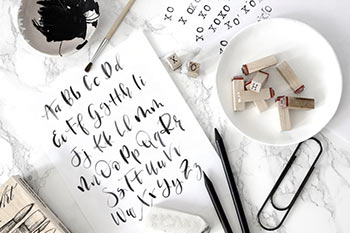 XO XO XO
XO XO XO
Aa Bb Cc Dd
Ee Ff Gg Hh Ii
Jj Kk Ll Mm
Nn Oo Pp Qq Rr
Ss Tt Uu Vv
Ww Xx Yy Zz